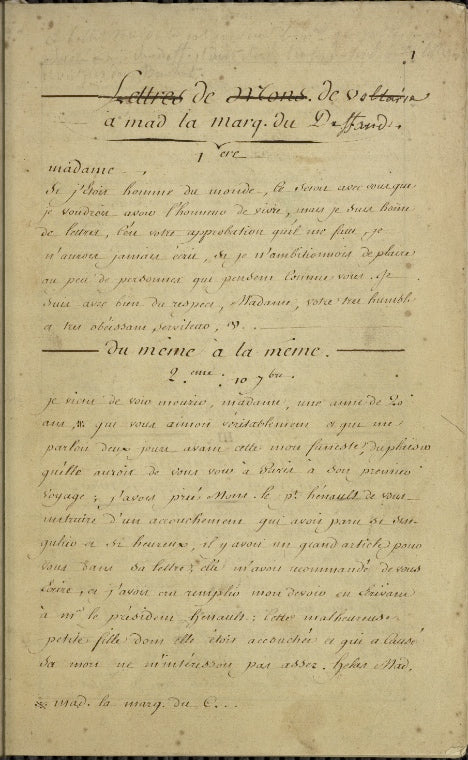 1
Lettres de Mons. de Voltaire
a mad la marq. du Deffand.
1ere
madame
Si j'étois homme du monde, ce seroit avec vous que
je voudrois avoir l'honneur de vivre, mais je suis homme
de lettres, c'est votre approbation qu'il me faut, je
n'aurois jamais écrit, si je n'ambitionnois de plaire
au peu de personnes qui pensent comme vous. je
suis avec bien du respect, Madame, votre tres humble
et tres obéissant serviteur, V.
du même à la même.
2.eme 10 7bre.
je viens de voir mourir, madame, une amie de 20
ans, qui vous aimoit véritablement et qui me
parloit deux jours avant cette mort funeste, du plaisir
qu'elle auroit de vous voir à Paris à son premier
voyage; j'avois prié Mons. le pt. hénault de vous
instruire d'un accouchement qui avoit paru si sin-
gulier et si heureux, il y avoit un grand article pour
vous dans sa lettre; elle m'avoit recommandé de vous
écrire, et j'avois cru remplir mon devoir en écrivant
à mr. le président hénault; cette malheureuse
petite fille dont elle étoit accouchée et qui a causé
sa mort ne m'intéressoit pas assez. helas Mad.
mad. la marq. du C...